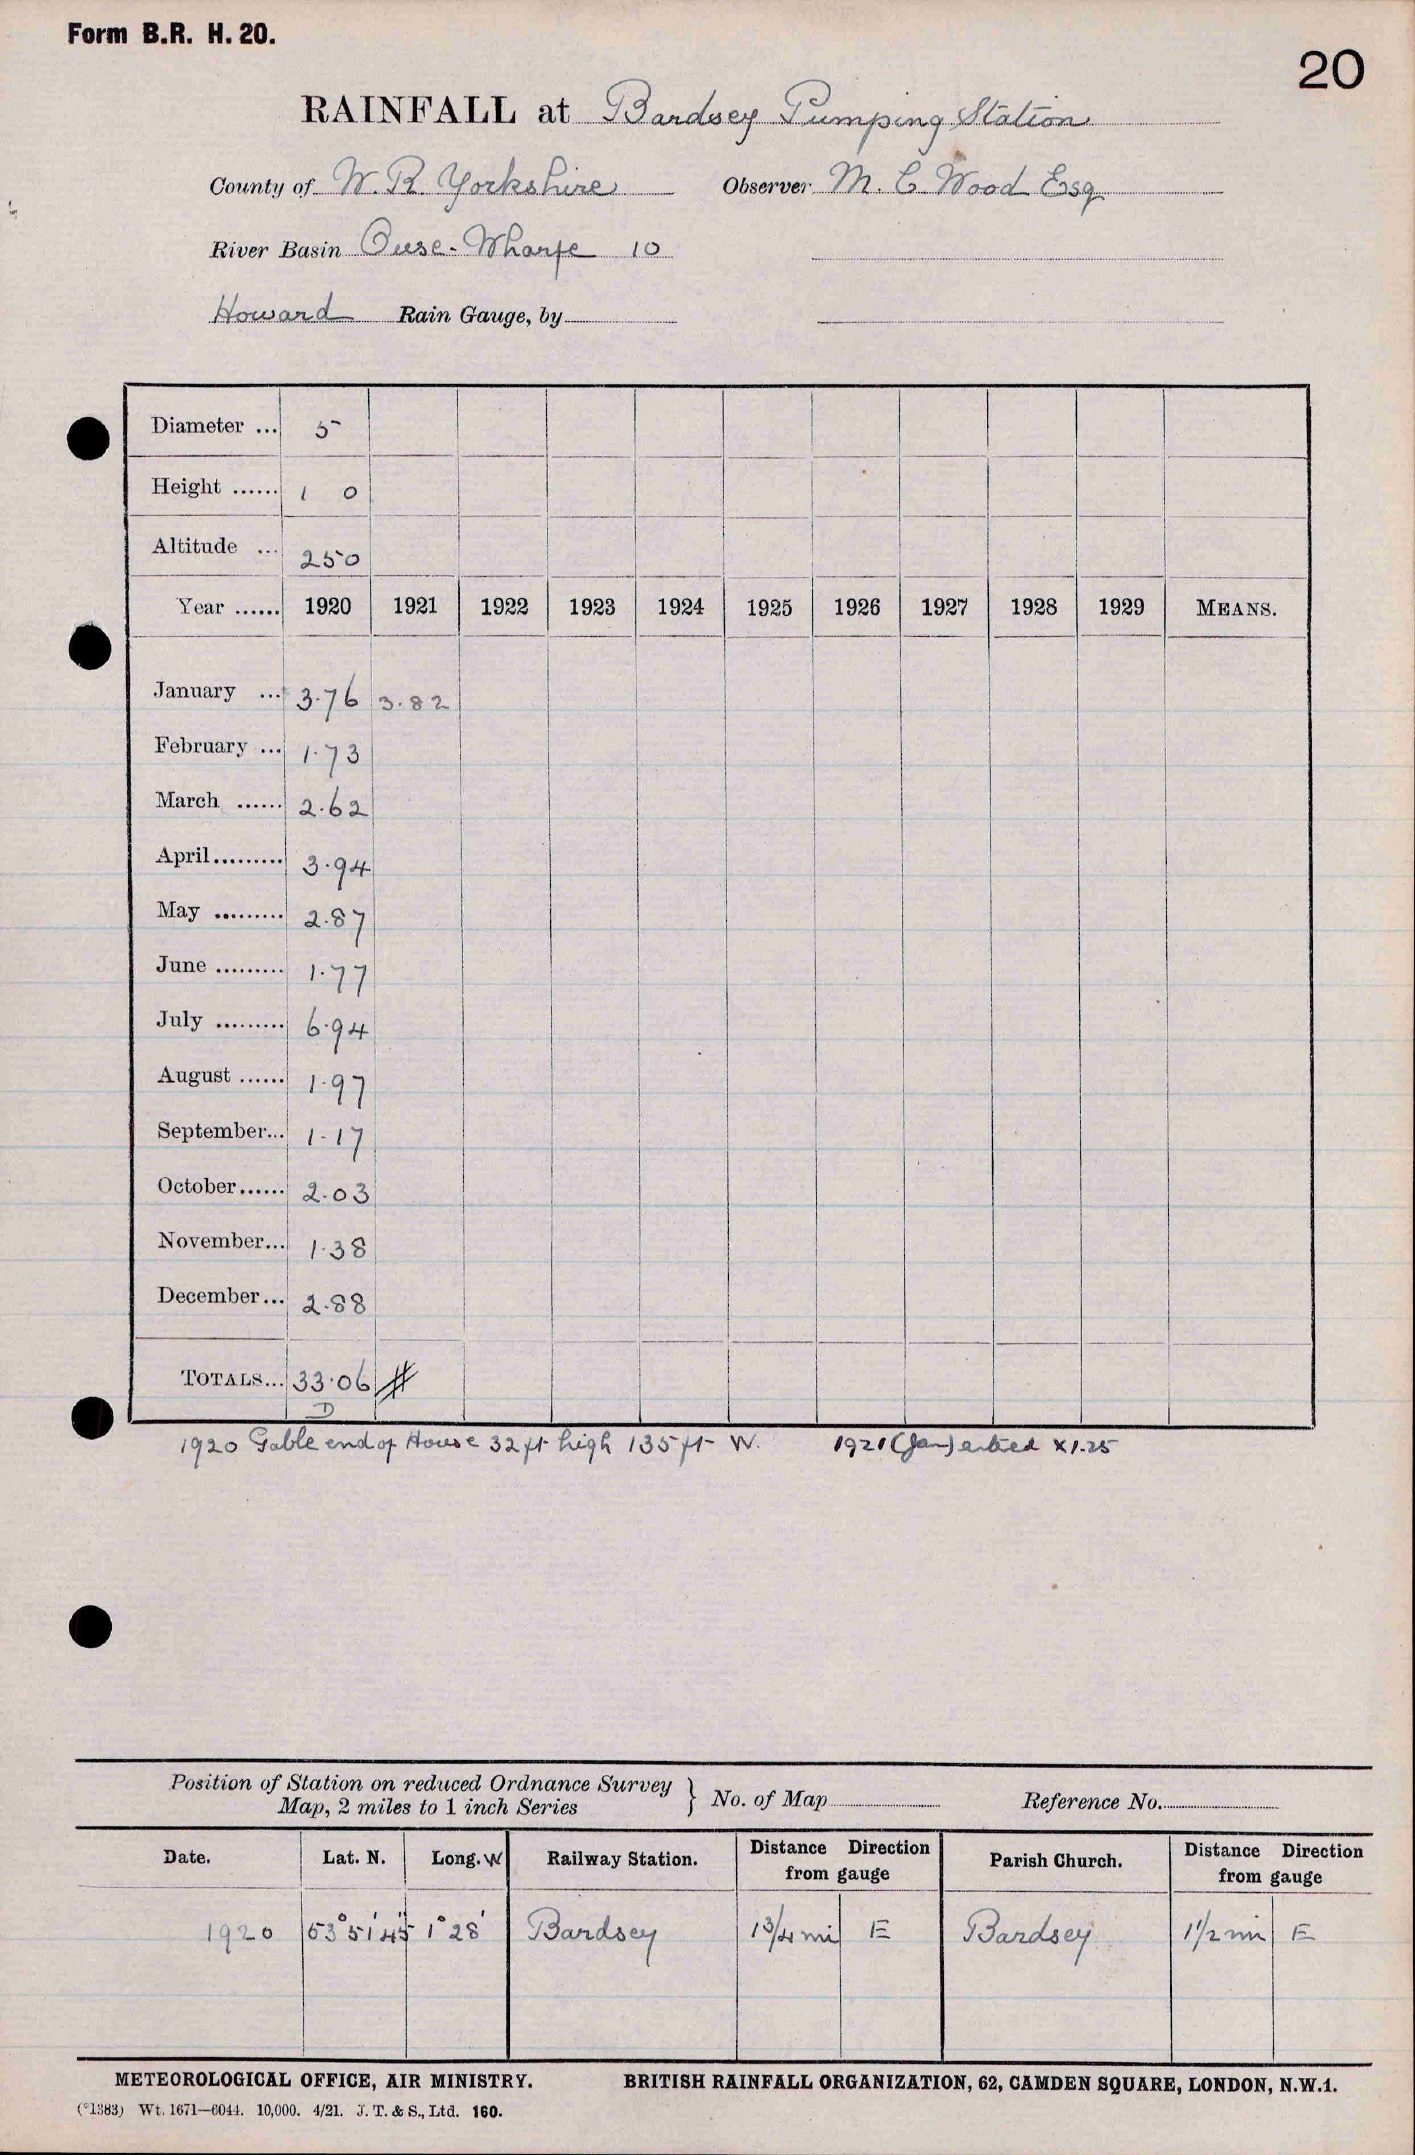 Form B.R. H. 20.
20
RAINFALL at Bardsey Pumping Station
County of W. R. Yorkshire Observer M. C. Wood Esq
River Basin Ouse-Wharfe 10
Howard Rain Gauge, by
Diameter ... 5
Height ...... 1 0
Altitude ... 250
Year ...... 1920 1921 1922 1923 1924 1925 1926 1927 1928 1929 MEANS.
January ... 3.76 3.82
February ... 1.73
March ...... 2.62
April......... 3.94
May ......... 2.87
June ......... 1.77
July ......... 6.94
August ...... 1.97
September... 1.17
October...... 2.03
November... 1.38
December... 2.88
TOTALS... 33.06
D
1920 Gable end of House 32 ft high 135 ft W. 1921 (Jan) entered x 1.25
Position of Station on reduced Ordnance Survey
Map, 2 miles to 1 inch Series } No. of Map Reference No.
Date. Lat. N. Long. W Railway Station. Distance Direction from gauge Parish Church. Distance Direction from gauge
1920 53° 51' 45" 1° 28' Bardsey 1 3/4 mi E Bardsey 1 1/2 mi E
METEOROLOGICAL OFFICE, AIR MINISTRY. BRITISH RAINFALL ORGANIZATION, 62, CAMDEN SQUARE, LONDON, N.W.1.
(*1383) Wt. 1671—6044. 10,000. 4/21. J. T. & S., Ltd. 160.